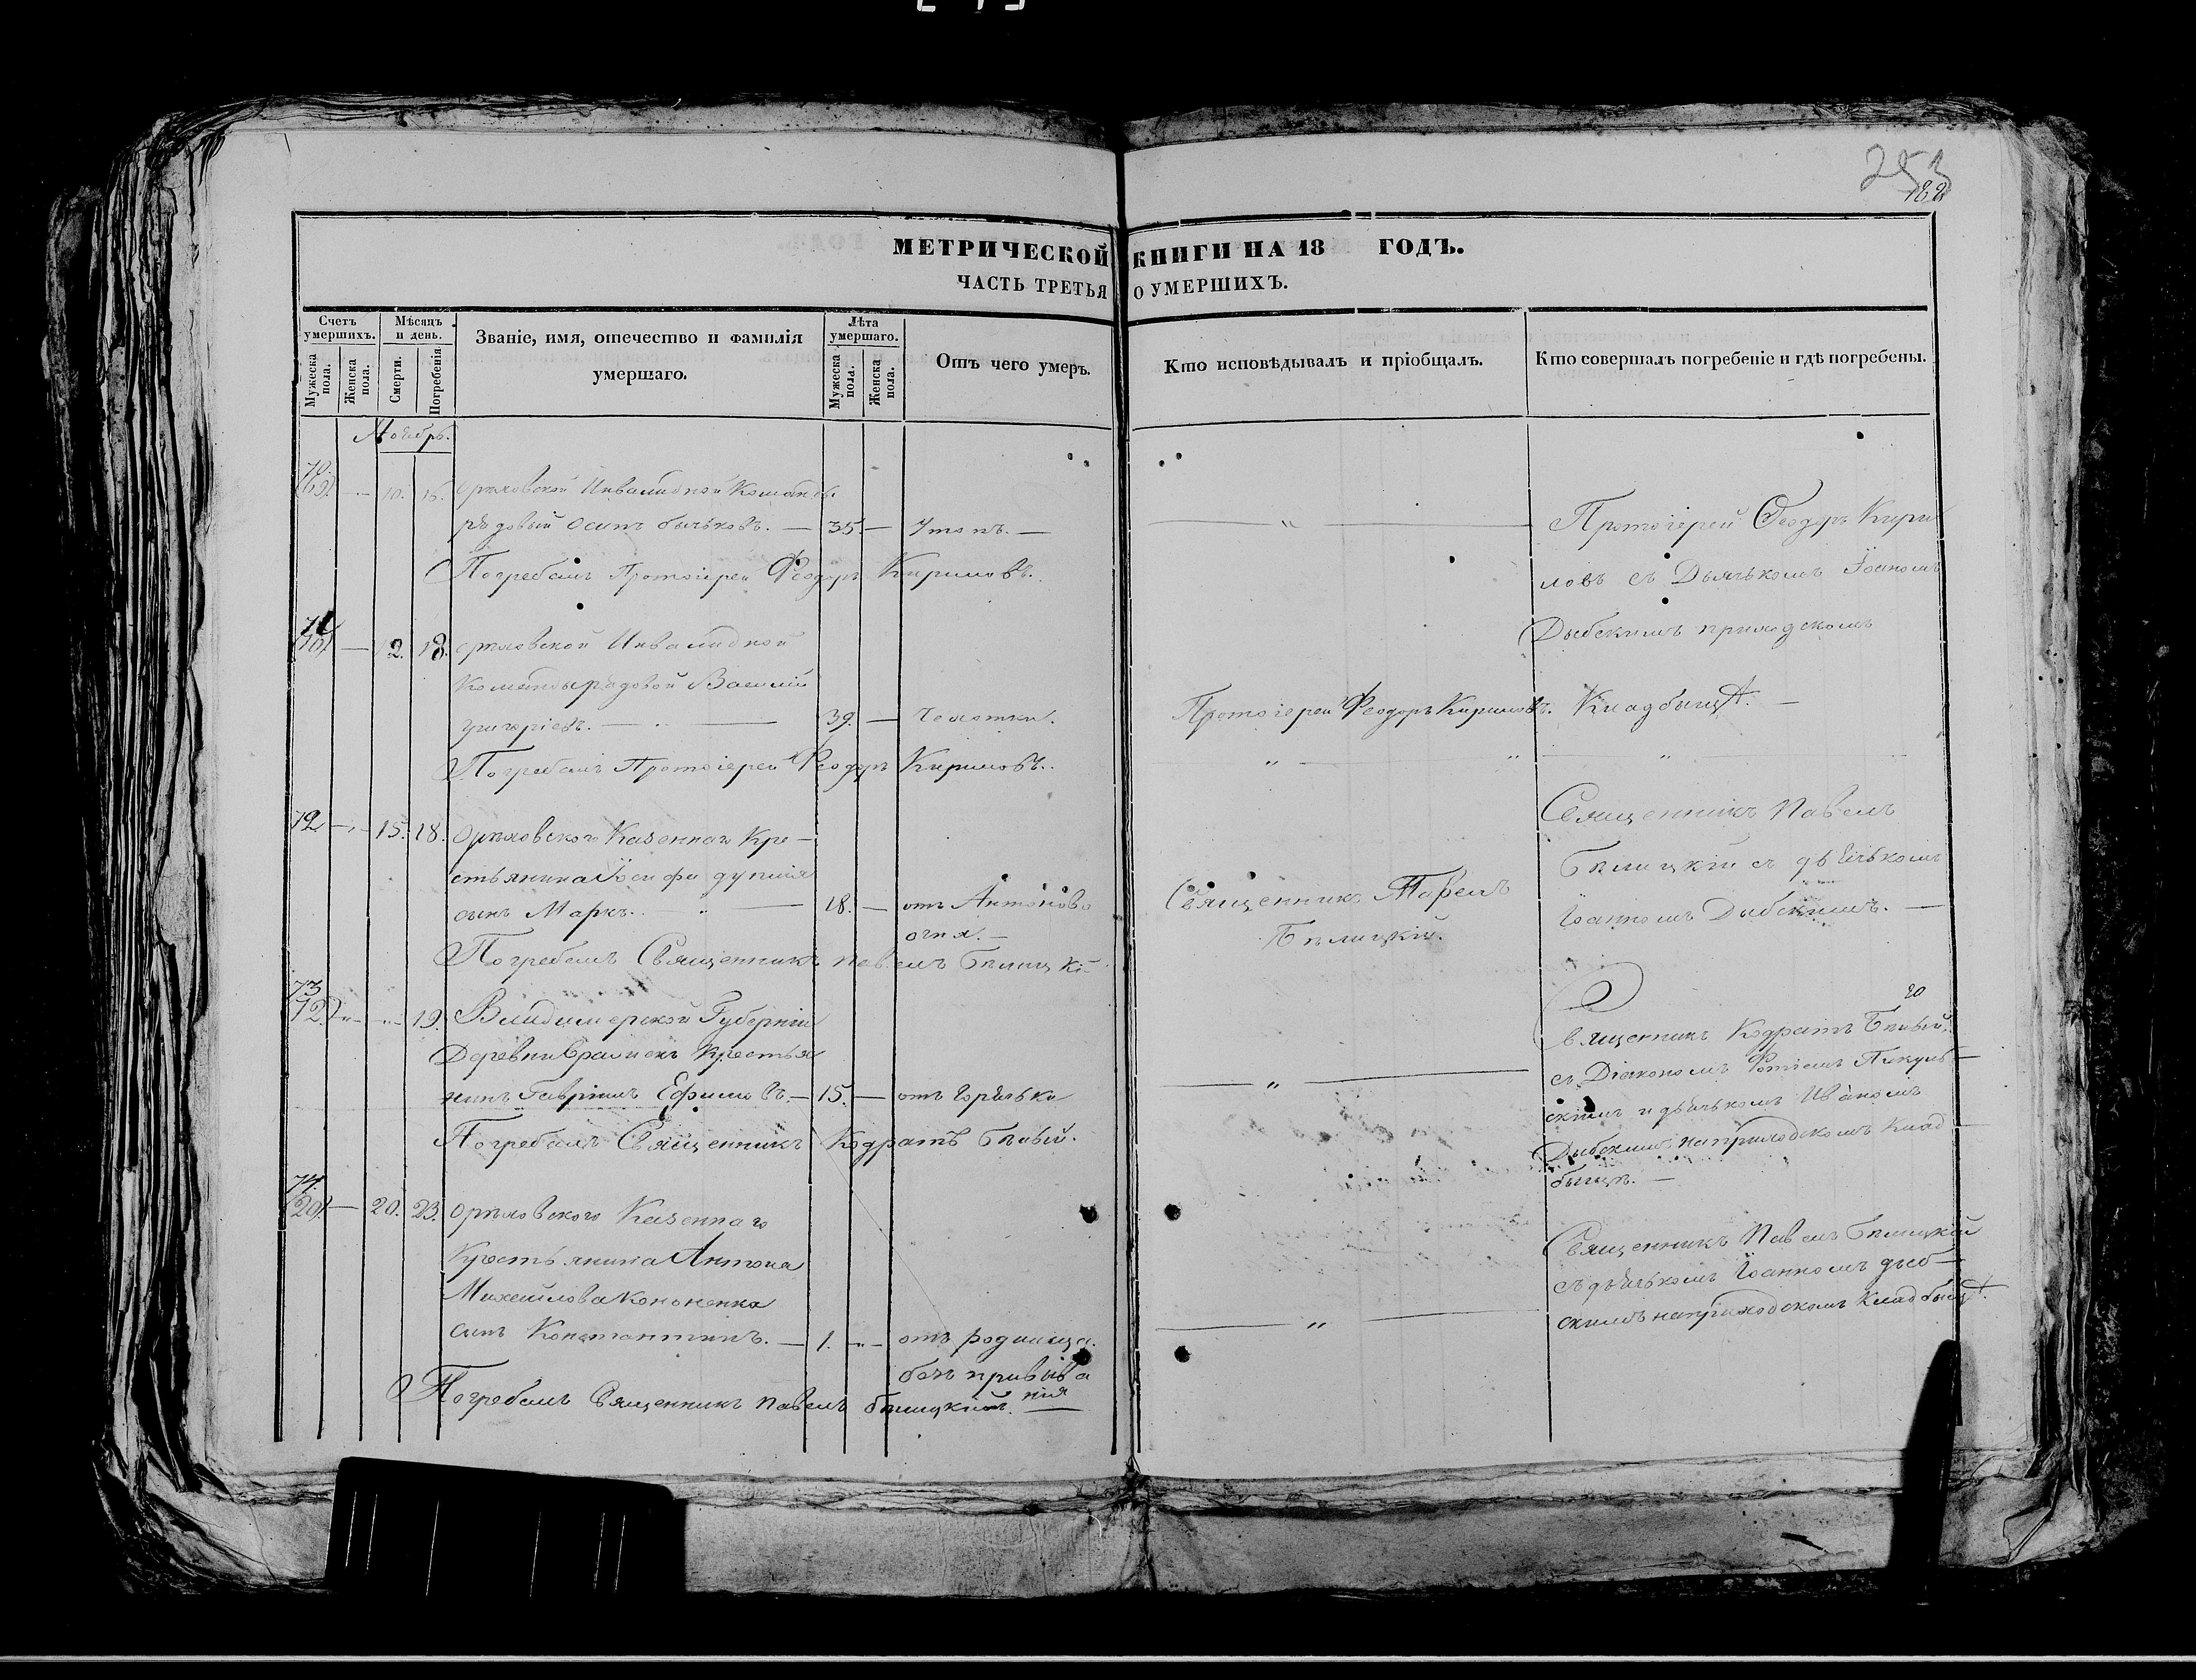 253
МЕТРИЧЕСКОЙ КНИГИ НА 18 ГОДЪ.
ЧАСТЬ ТРЕТЬЯ О УМЕРШИХЪ.
Счетъ умершихъ.
Мужеска пола.
Женска пола.
Мѣсяцъ и день.
Смерти.
Погребенія.
Званіе, имя, отечество и фамилія
умершаго.
Лѣта умершаго.
Мужеска пола.
Женска пола.
Отъ чего умеръ.
Кто исповѣдывалъ и пріобщалъ.
Кто совершалъ погребеніе и гдѣ погребены.
Ноябрь.
70 — 10. 16. Орѣховской Инвалидной Команды
рядовый Осипъ Бычьковъ. — 35 — Утопъ. —
Погребалъ Протоіерей Феодоръ Кириловъ.
Протоіерей Феодоръ Кири
ловъ съ Дьячькомъ Іоаномъ
Дыбскимъ приходскомъ
71 — 12. 18. Орѣховской Инвалидной
Команды рядовой Василій
Григоріевъ. — 39. — Чехотки.
Погребалъ Протоіерей Феодоръ Кириловъ.
Протоіерей Феодоръ Кириловъ.
Кладбищѣ. —
72 — 15. 18. Орѣховского Казеннаго Кре-
стьянина Іосифа
сынъ Маркъ. — 18. — отъ Антонова
огня. —
Погребалъ Священникъ Павелъ Бѣлицкій
Священникъ Павелъ
Бѣлицкій.
Священникъ Павелъ
Бѣлицкій съ дьячькомъ
Іоанномъ Дыбскимъ. —
73 — 19. Владимерской Губерніи
Деревни Крестья
нинъ Гавріилъ Ефимовъ. — 15. — отъ горячьки
Погребалъ Священникъ Кодратъ Бѣлый.
20
Священникъ Кодратъ Бѣлый
съ Діакономъ Фотіемъ
скимъ и дьячькомъ Иваномъ
Дыбскимъ на приходскомъ Клад-
бищѣ. —
74. — 20. 23. Орѣховского Казеннаго
Крестьянина Антона
Михайлова Кононенка
сынъ Константинъ. — 1. — отъ родимца.
безъ привыва
нія
Погребалъ Священникъ Павелъ Бѣлицкій.
Священникъ Павелъ Бѣлицкій
съ дьячькомъ Іоанномъ Дыб-
скимъ на приходскомъ Кладбищѣ.